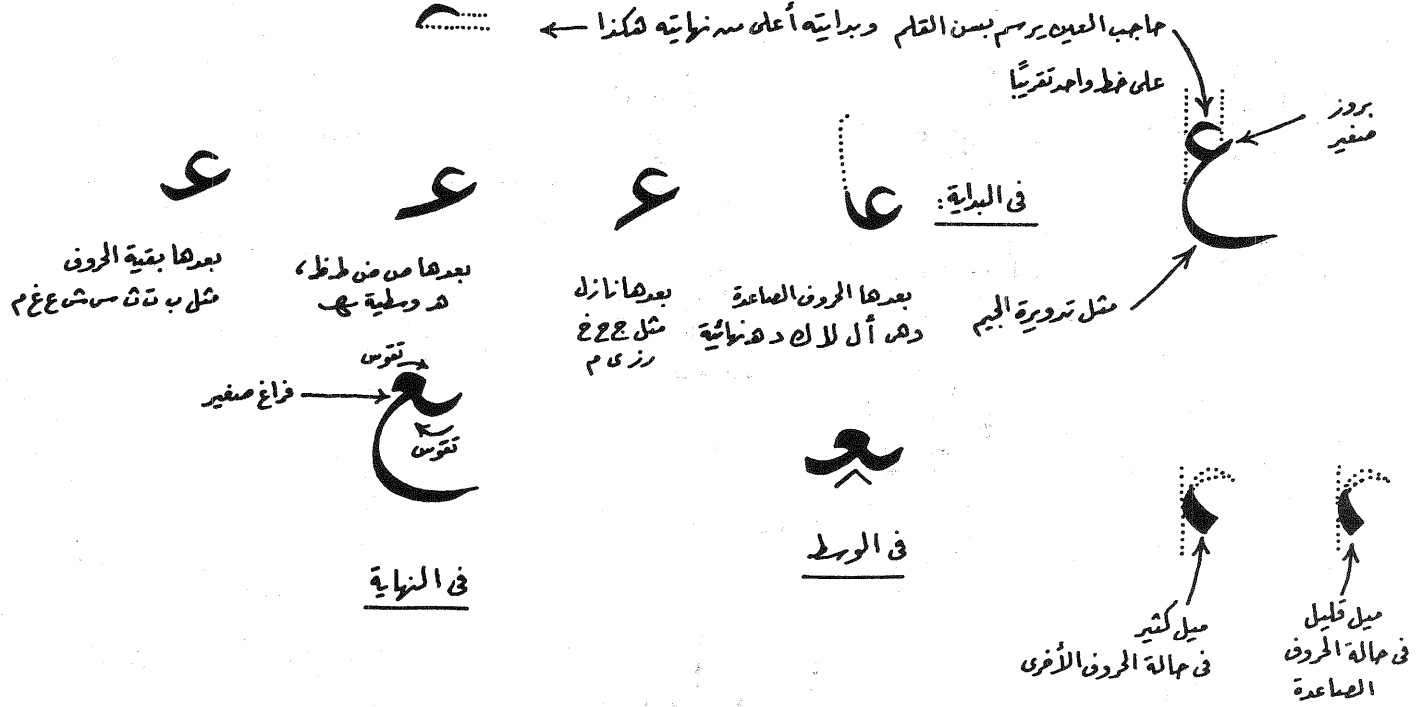 حاجب العين يرسم بسن القلم وبدايته أعلى من نهايته هكذا
على خط واحد تقريبًا
بروز
صغير
ع
فى البداية:
عا
ء
ء
ء
بعدها الحروف الصاعدة
وهى أ ل لا ك د ه نهائية
بعدها نازل
مثل ج ح خ
ر ز ى م
بعدها ص ض ط ظ،
هـ وسطية ـهـ
بعدها بقية الحروف
مثل ب ت ث س ش ع غ م
مثل تدويرة الجيم
تقوس
فراغ صغير
ـع
تقوس
فى النهاية
ـعـ
فى الوسط
ميل كثير
فى حالة الحروف الأخرى
ميل قليل
فى حالة الحروف
الصاعدة